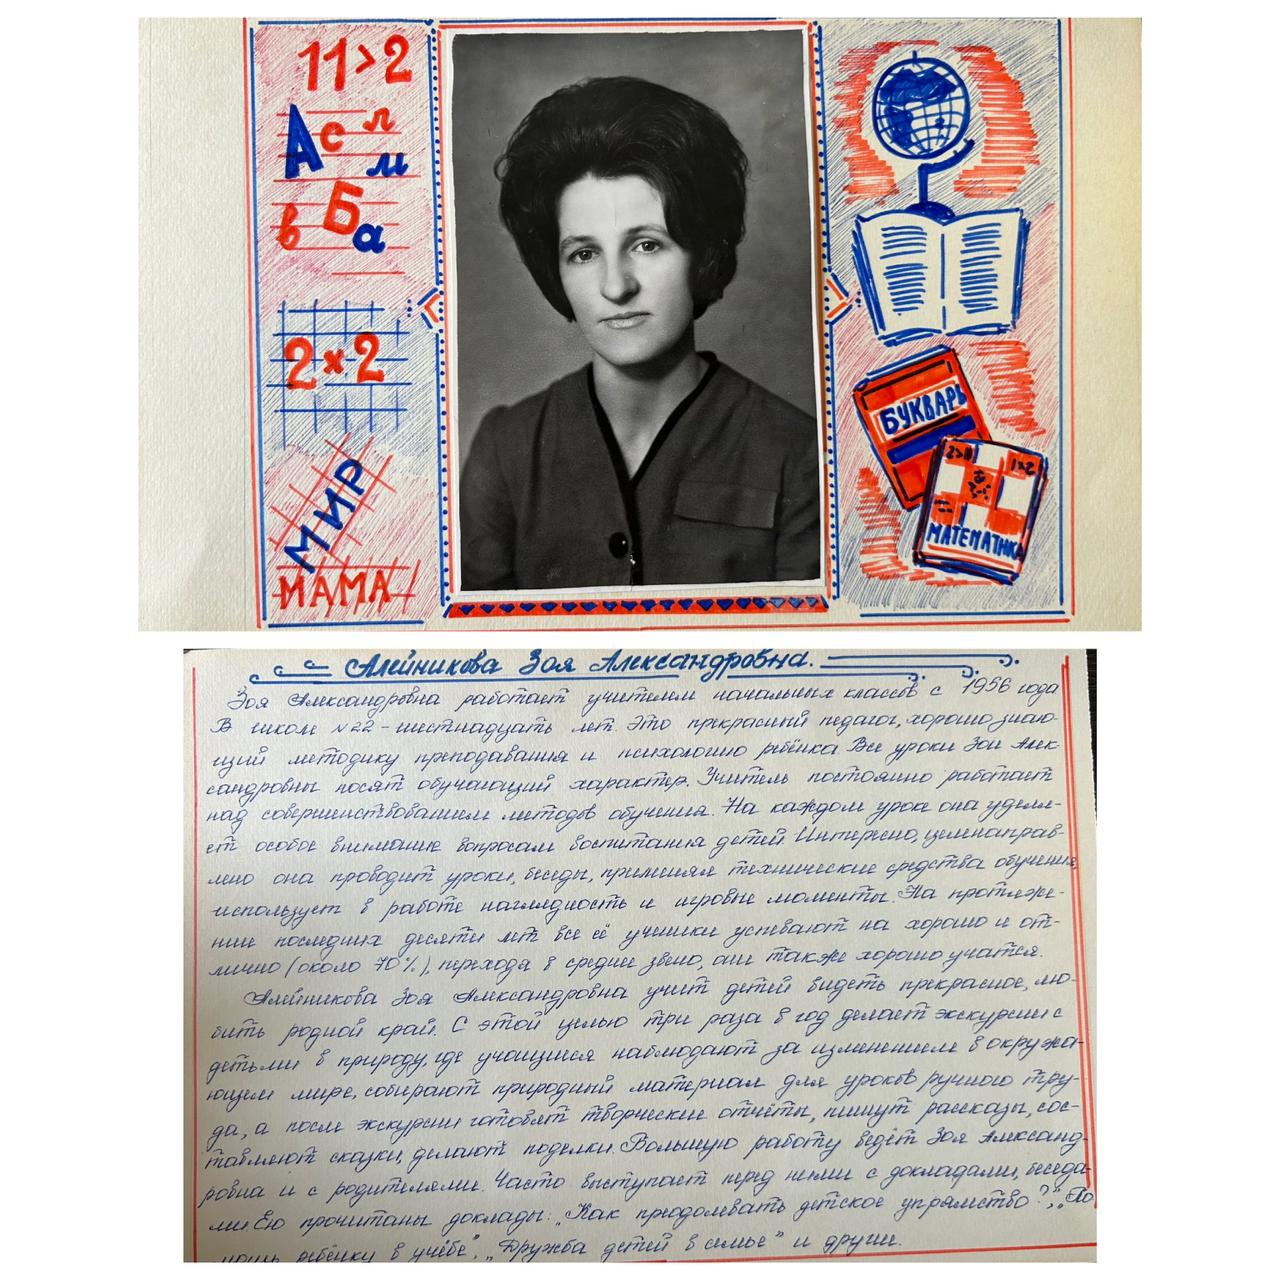 11>2
А с л
м
в Б а
2×2
МИР
МАМА
БУКВАРЬ
2>0 1>2
МАТЕМАТИКА
Алейникова Зоя Александровна.
Зоя Александровна работает учителем начальных классов с 1956 года
В школе №22 - шестнадцать лет. Это прекрасный педагог, хорошо знаю-
щий методику преподавания и психологию ребёнка. Все уроки Зои Алек-
сандровны носят обучающий характер. Учитель постоянно работает
над совершенствованием методов обучения. На каждом уроке она уделя-
ет особое внимание вопросам воспитания детей. Интересно, целенаправ-
лено она проводит уроки, беседы, применяя технические средства обучения,
использует в работе наглядность и игровые моменты. На протяже-
нии последних десяти лет все её ученики успевают на хорошо и от-
лично (около 70%), переходя в среднее звено, они также хорошо учатся.
Алейникова Зоя Александровна учит детей видеть прекрасное, лю-
бить родной край. С этой целью три раза в год делает экскурсии с
детьми в природу, где учащиеся наблюдают за изменением в окружа-
ющем мире, собирают природный материал для уроков ручного тру-
да, а после экскурсии готовят творческие отчёты, пишут рассказы, сос-
тавляют сказки, делают поделки. Большую работу ведёт Зоя Александ-
ровна и с родителями. Часто выступает перед ними с докладами, беседа-
ми. Ею прочитаны доклады: „Как преодолевать детское упрямство?", „По-
мощь ребёнку в учёбе", „Дружба детей в семье" и другие.